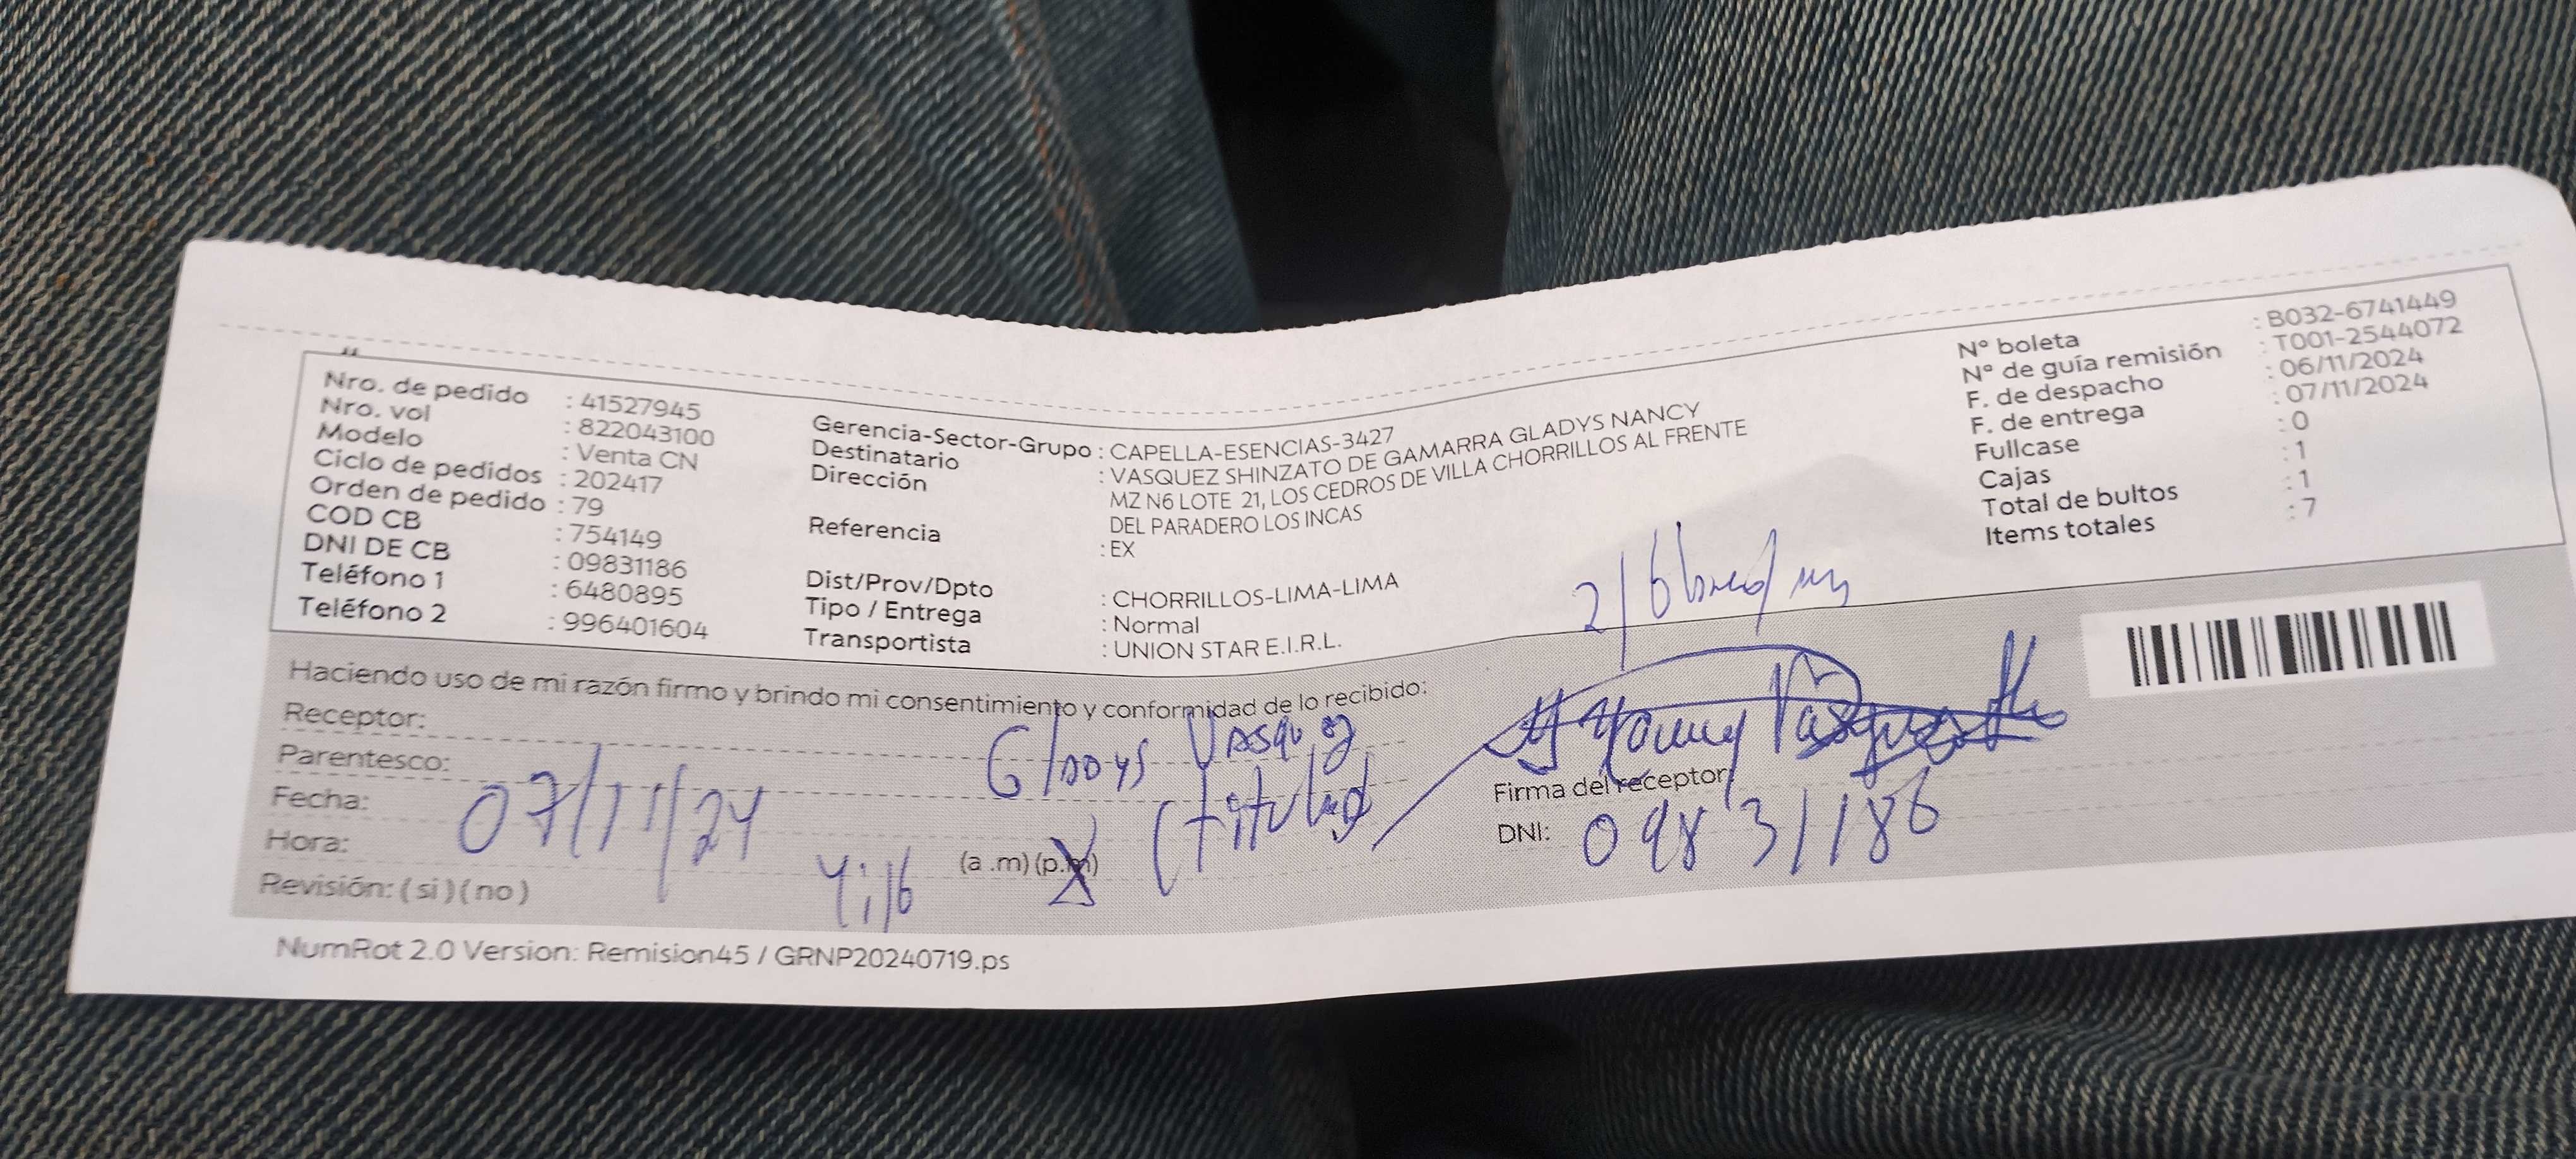 Nro. de pedido : 41527945
Nro. vol : 822043100
Modelo : Venta CN
Ciclo de pedidos : 202417
Orden de pedido : 79
COD CB : 754149
DNI DE CB : 09831186
Teléfono 1 : 6480895
Teléfono 2 : 996401604
Gerencia-Sector-Grupo : CAPELLA-ESENCIAS-3427
Destinatario : VASQUEZ SHINZATO DE GAMARRA GLADYS NANCY
Dirección MZ N6 LOTE 21, LOS CEDROS DE VILLA CHORRILLOS AL FRENTE
DEL PARADERO LOS INCAS
Referencia : EX
Dist/Prov/Dpto : CHORRILLOS-LIMA-LIMA
Tipo / Entrega : Normal
Transportista : UNION STAR E.I.R.L.
N° boleta : B032-6741449
N° de guía remisión : T001-2544072
F. de despacho : 06/11/2024
F. de entrega : 07/11/2024
Fullcase : 0
Cajas : 1
Total de bultos : 1
Items totales : 7
Haciendo uso de mi razón firmo y brindo mi consentimiento y conformidad de lo recibido:
Receptor: Gladys Vasquez
Parentesco: (titular)
Fecha: 07/11/24
Hora: 4:16 (a .m) (p.m)
Revisión: ( si ) ( no )
Firma del receptor:
DNI: 09831186
NumRot 2.0 Version: Remision45 / GRNP20240719.ps